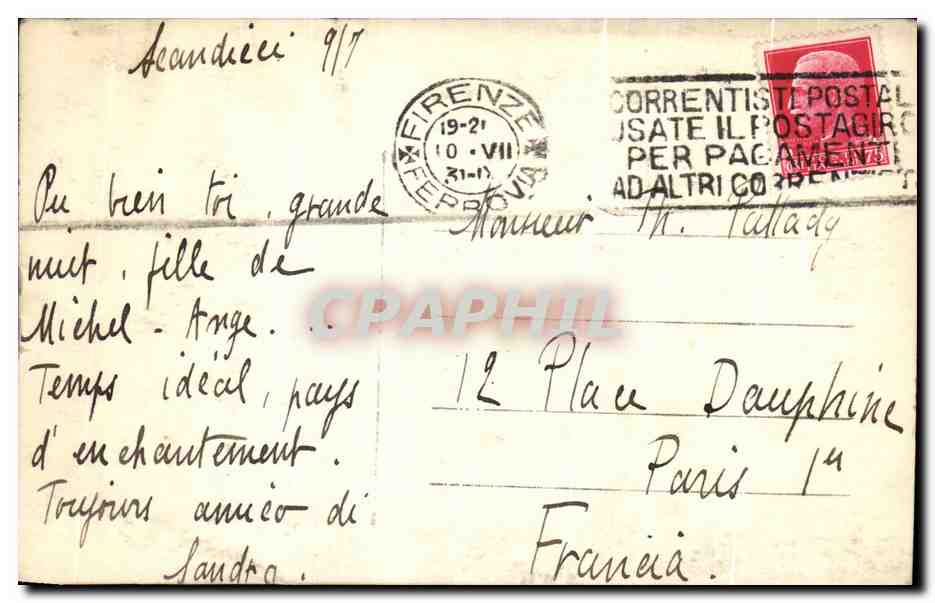 Scandicci 9/7
FIRENZE
19-21
10 · VII
31-IX
FERROVIA
CORRENTISTI POSTAL
USATE IL POSTAGIRO
PER PAGAMENTI
AD ALTRI CORRENTISTI
75
Ou bien toi, grande
nuit, fille de
Michel-Ange...
Temps idéal, pays
d'enchantement.
Toujours amico di
Sandro.
Monsieur Th. Pallady
12 Place Dauphine
Paris 1er
Francia.
CPAPHIL